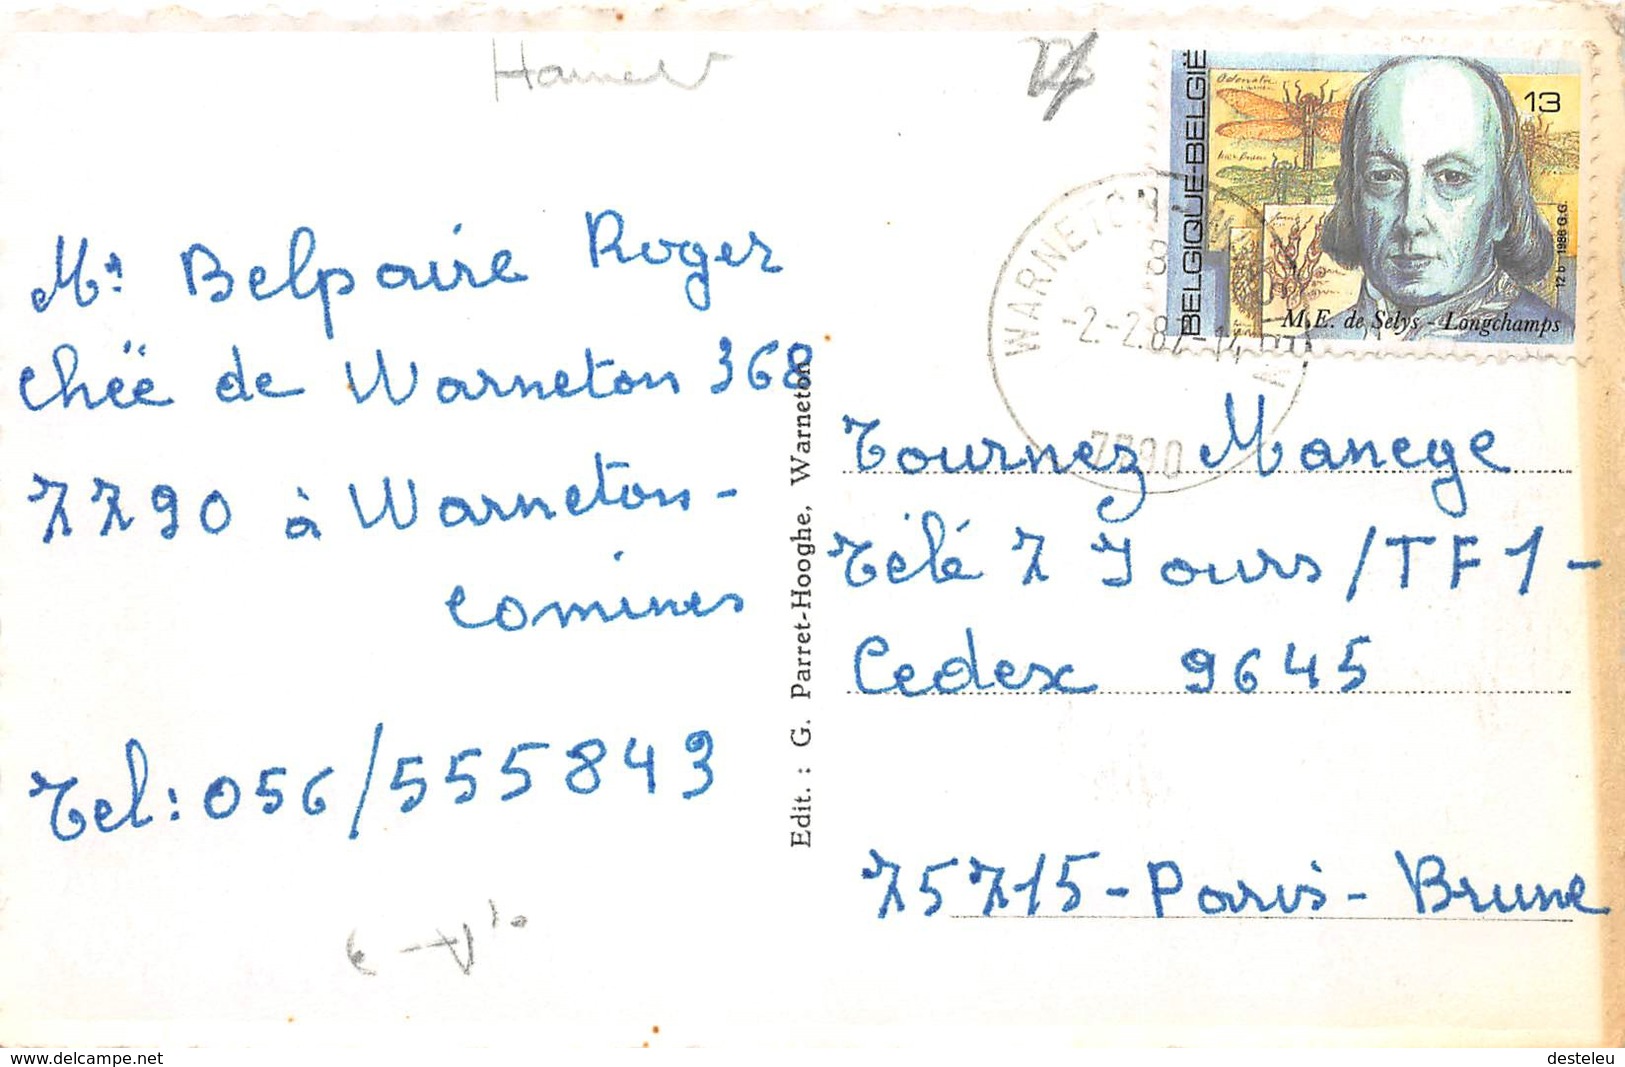 Mr Belpaire Roger
chëe de Warneton 368
7790 à Warneton-
comines
Tel: 056/555843
Edit. : G. Parret-Hooghe, Warneton
BELGIQUE-BELGIË
Odonata
13
12 b 1986 G.G.
M.E. de Selys - Longchamps
WARNETON
-2-2.87-14
7790
Tournez Manege
Télé 7 Jours/TF1-
Cedex 9645
75715-Paris-Brune
www.delcampe.net
desteleu